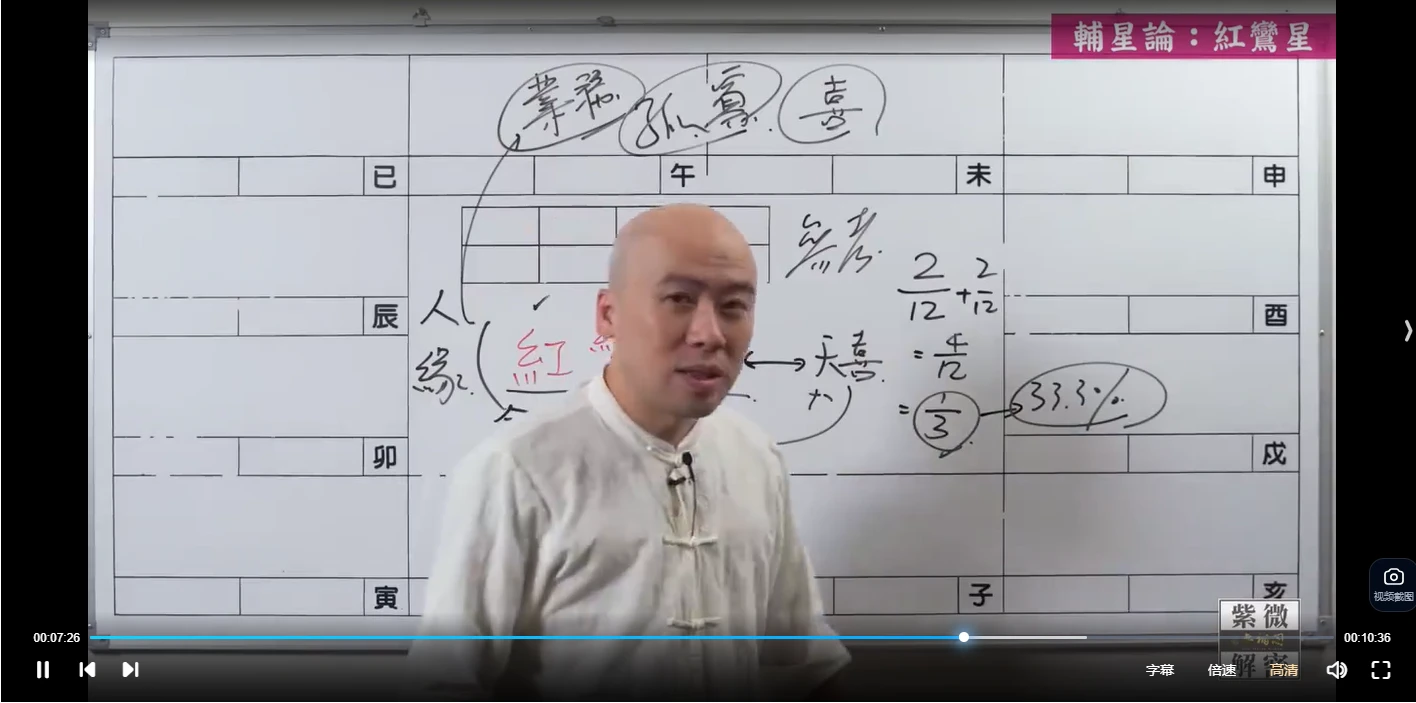 輔星論：紅鸞星
業務 孤寡 喜
巳 午 未 申
無考
2/12 + 2/12
辰 酉
人
緣
紅
天喜
= 4/12
= 1/3
33.3%
卯 戌
寅 子 亥
紫微
解密
视频截图
00:07:26
00:10:36
字幕 倍速 高清